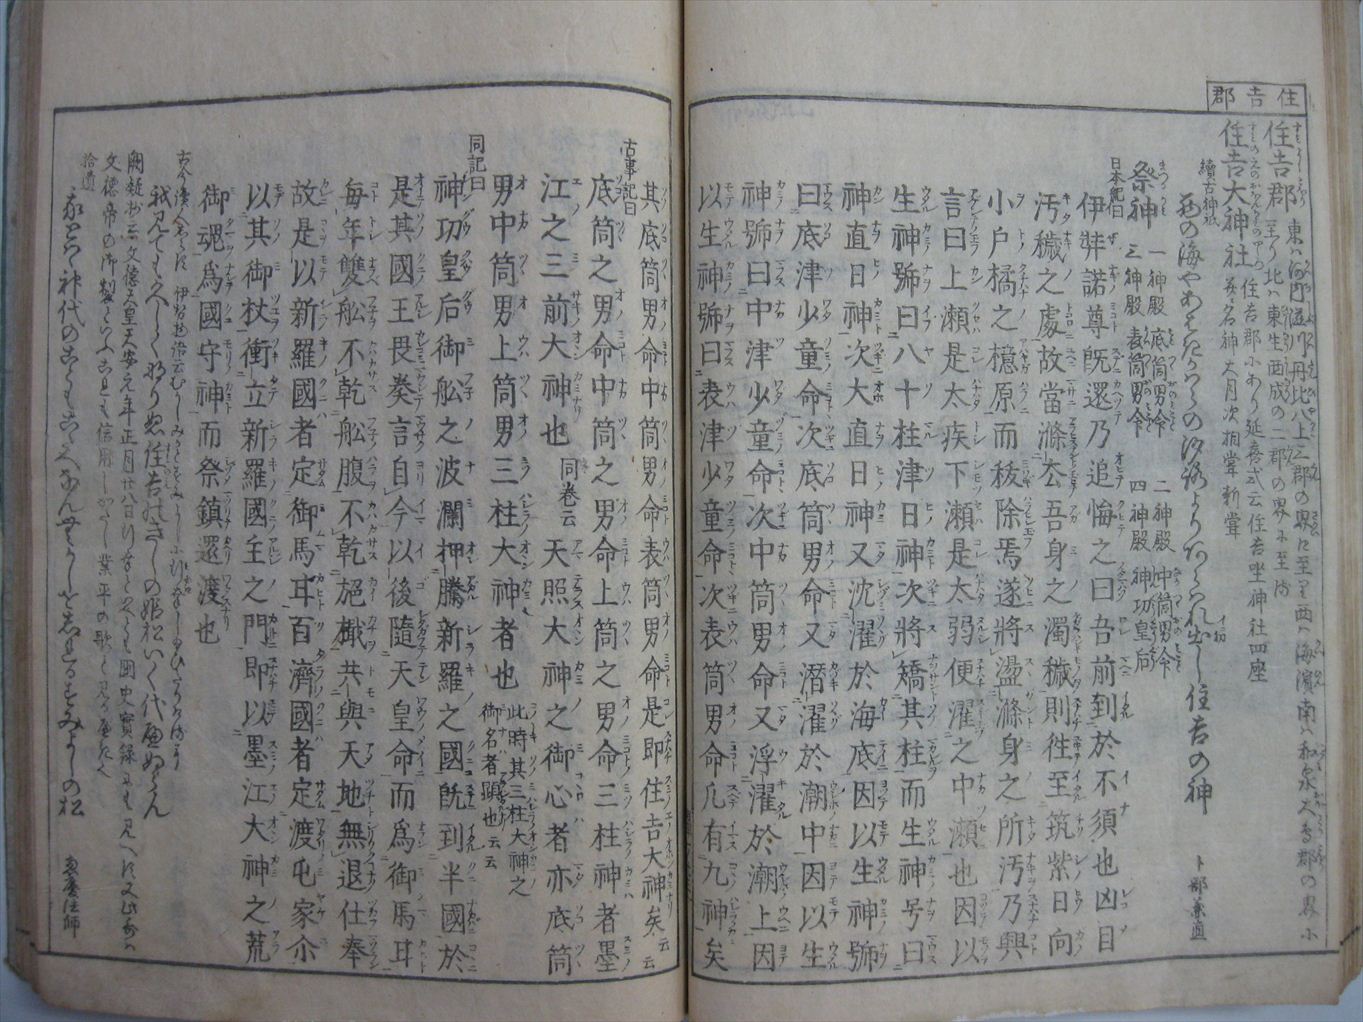 住吉郡
住吉郡 東ハ河内渋川丹比八上三郡の界に至り西ハ海濱南ハ和泉大鳥郡の界に
至り北ハ東生西成の二郡の界に至る
住吉大神社 住吉郡にあり延喜式云住吉坐神社四座
並名神大月次相嘗新嘗
續古神祇
西の海やあはきかうらの汐路よりあらはれ出し住吉の神 卜部兼直
祭神 一神殿 底筒男命 二神殿 中筒男命
三神殿 表筒男命 四神殿 神功皇后
日本紀曰
伊弉諾尊既還乃追悔之曰吾前到於不須也凶目
汚穢之處故當滌去吾身之濁穢則往至筑紫日向
小戸橘之檍原而秡除焉遂將盪滌身之所汚乃興
言曰上瀬是太疾下瀬是太弱便濯之中瀬也因以
生神號曰八十柱津日神次將矯其柱而生神号曰
神直日神次大直日神又沈濯於海底因以生神號
曰底津少童命次底筒男命又潛濯於潮中因以生
神號曰中津少童命次中筒男命又浮濯於潮上因
以生神號曰表津少童命次表筒男命凡有九神矣
其底筒男命中筒男命表筒男命是即住吉大神矣云云
古事記曰
底筒之男命中筒之男命上筒之男命三柱神者墨
江之三前大神也 同巻云 天照大神之御心者亦底筒
男中筒男上筒男三柱大神者也 此時其三柱大神之
御名者顕也云云
同記曰
神功皇后御舩之波瀾押騰新羅之國既到半國於
是其國王畏𢙶言自今以後隨天皇命而為御馬耳
毎年雙舩不乾舩腹不乾䑨檝共與天地無退仕奉
故是以新羅國者定御馬耳百濟國者定渡屯家尒
以其御杖衝立新羅國主之門即以墨江大神之荒
御魂為國守神而祭鎮還渡也
古今
我見ても久しくなりぬ住吉のきしの姫松いく代へぬらん
文徳天皇天安元年正月廿八日
文徳帝の御製
拾遺
神代のことも 住よしの松 法師